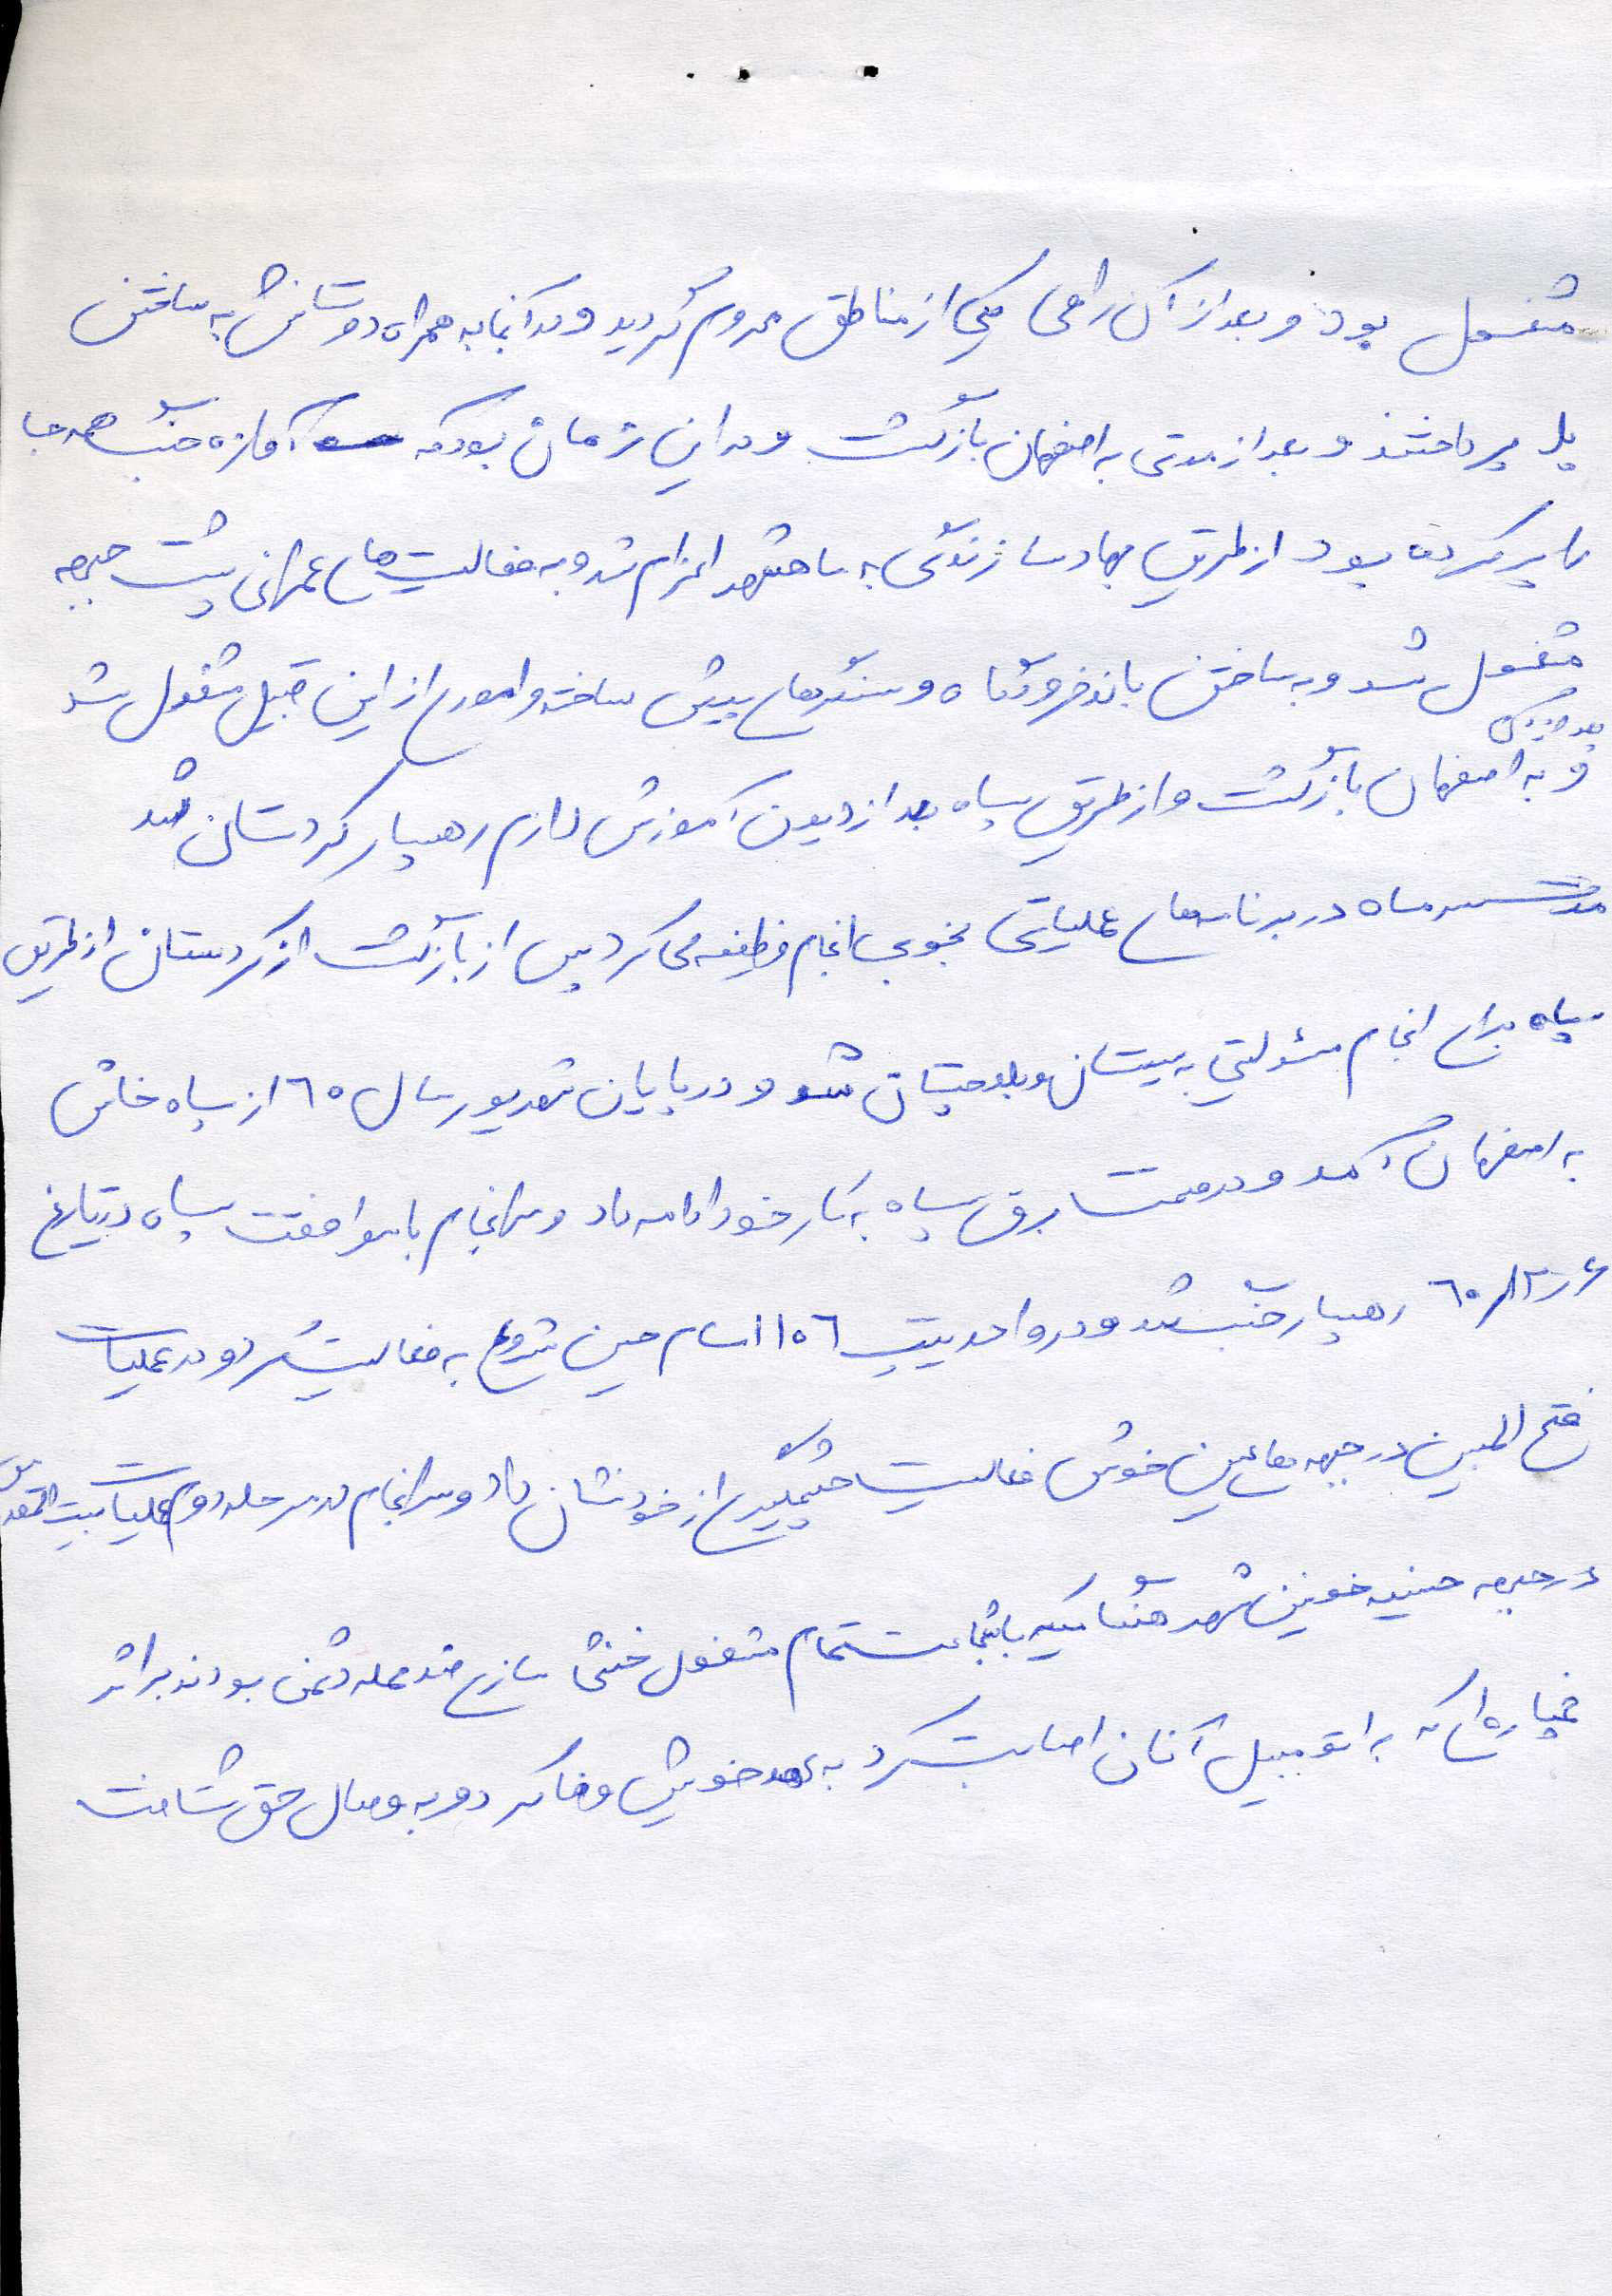 مشغول بود و بعد از آن راهی یکی از مناطق محروم گردید و در آنجا به همراه دوستانش به ساختن
پل پرداختند و بعد از مدتی به اصفهان بازگشت و در این زمان بود که آوازه جنگ همه جا
را پر کرده بود از طریق جهاد سازندگی به ماهشهر اعزام شد و به فعالیت های عمرانی پشت جبهه
مشغول شد و به ساختن باند فرودگاه و سنگرهای پیش ساخته و اموری از این قبیل مشغول شد
و به اصفهان بازگشت و از طریق سپاه بعد از دیدن آموزش لازم رهسپار کردستان شد
مدت سه ماه در برنامه های عملیاتی بخوبی انجام وظیفه می کرد پس از بازگشت از کردستان از طریق
سپاه برای انجام مسئولیتی به سیستان و بلوچستان شد و در پایان شهریور سال ٦٠ از سپاه خاش
به اصفهان آمد و در قسمت برق سپاه به کار خود ادامه داد و سرانجام با موافقت سپاه در تاریخ
٦٠/١٢/ رهسپار جنگ شد و در واحد تیپ امام حسین شروع به فعالیت کرد و در عملیات
فتح المبین در جبهه های عین خوش فعالیت چشمگیری از خود نشان داد و سرانجام در مرحله دوم عملیات بیت المقدس
در جبهه حسینیه خونین شهر هنگامیکه با شجاعت تمام مشغول خنثی سازی ضد حمله دشمن بودند بر اثر
خمپاره ای که به اتومبیل آنان اصابت کرد به عهد خویش وفا کرد و به وصال حق شتافت